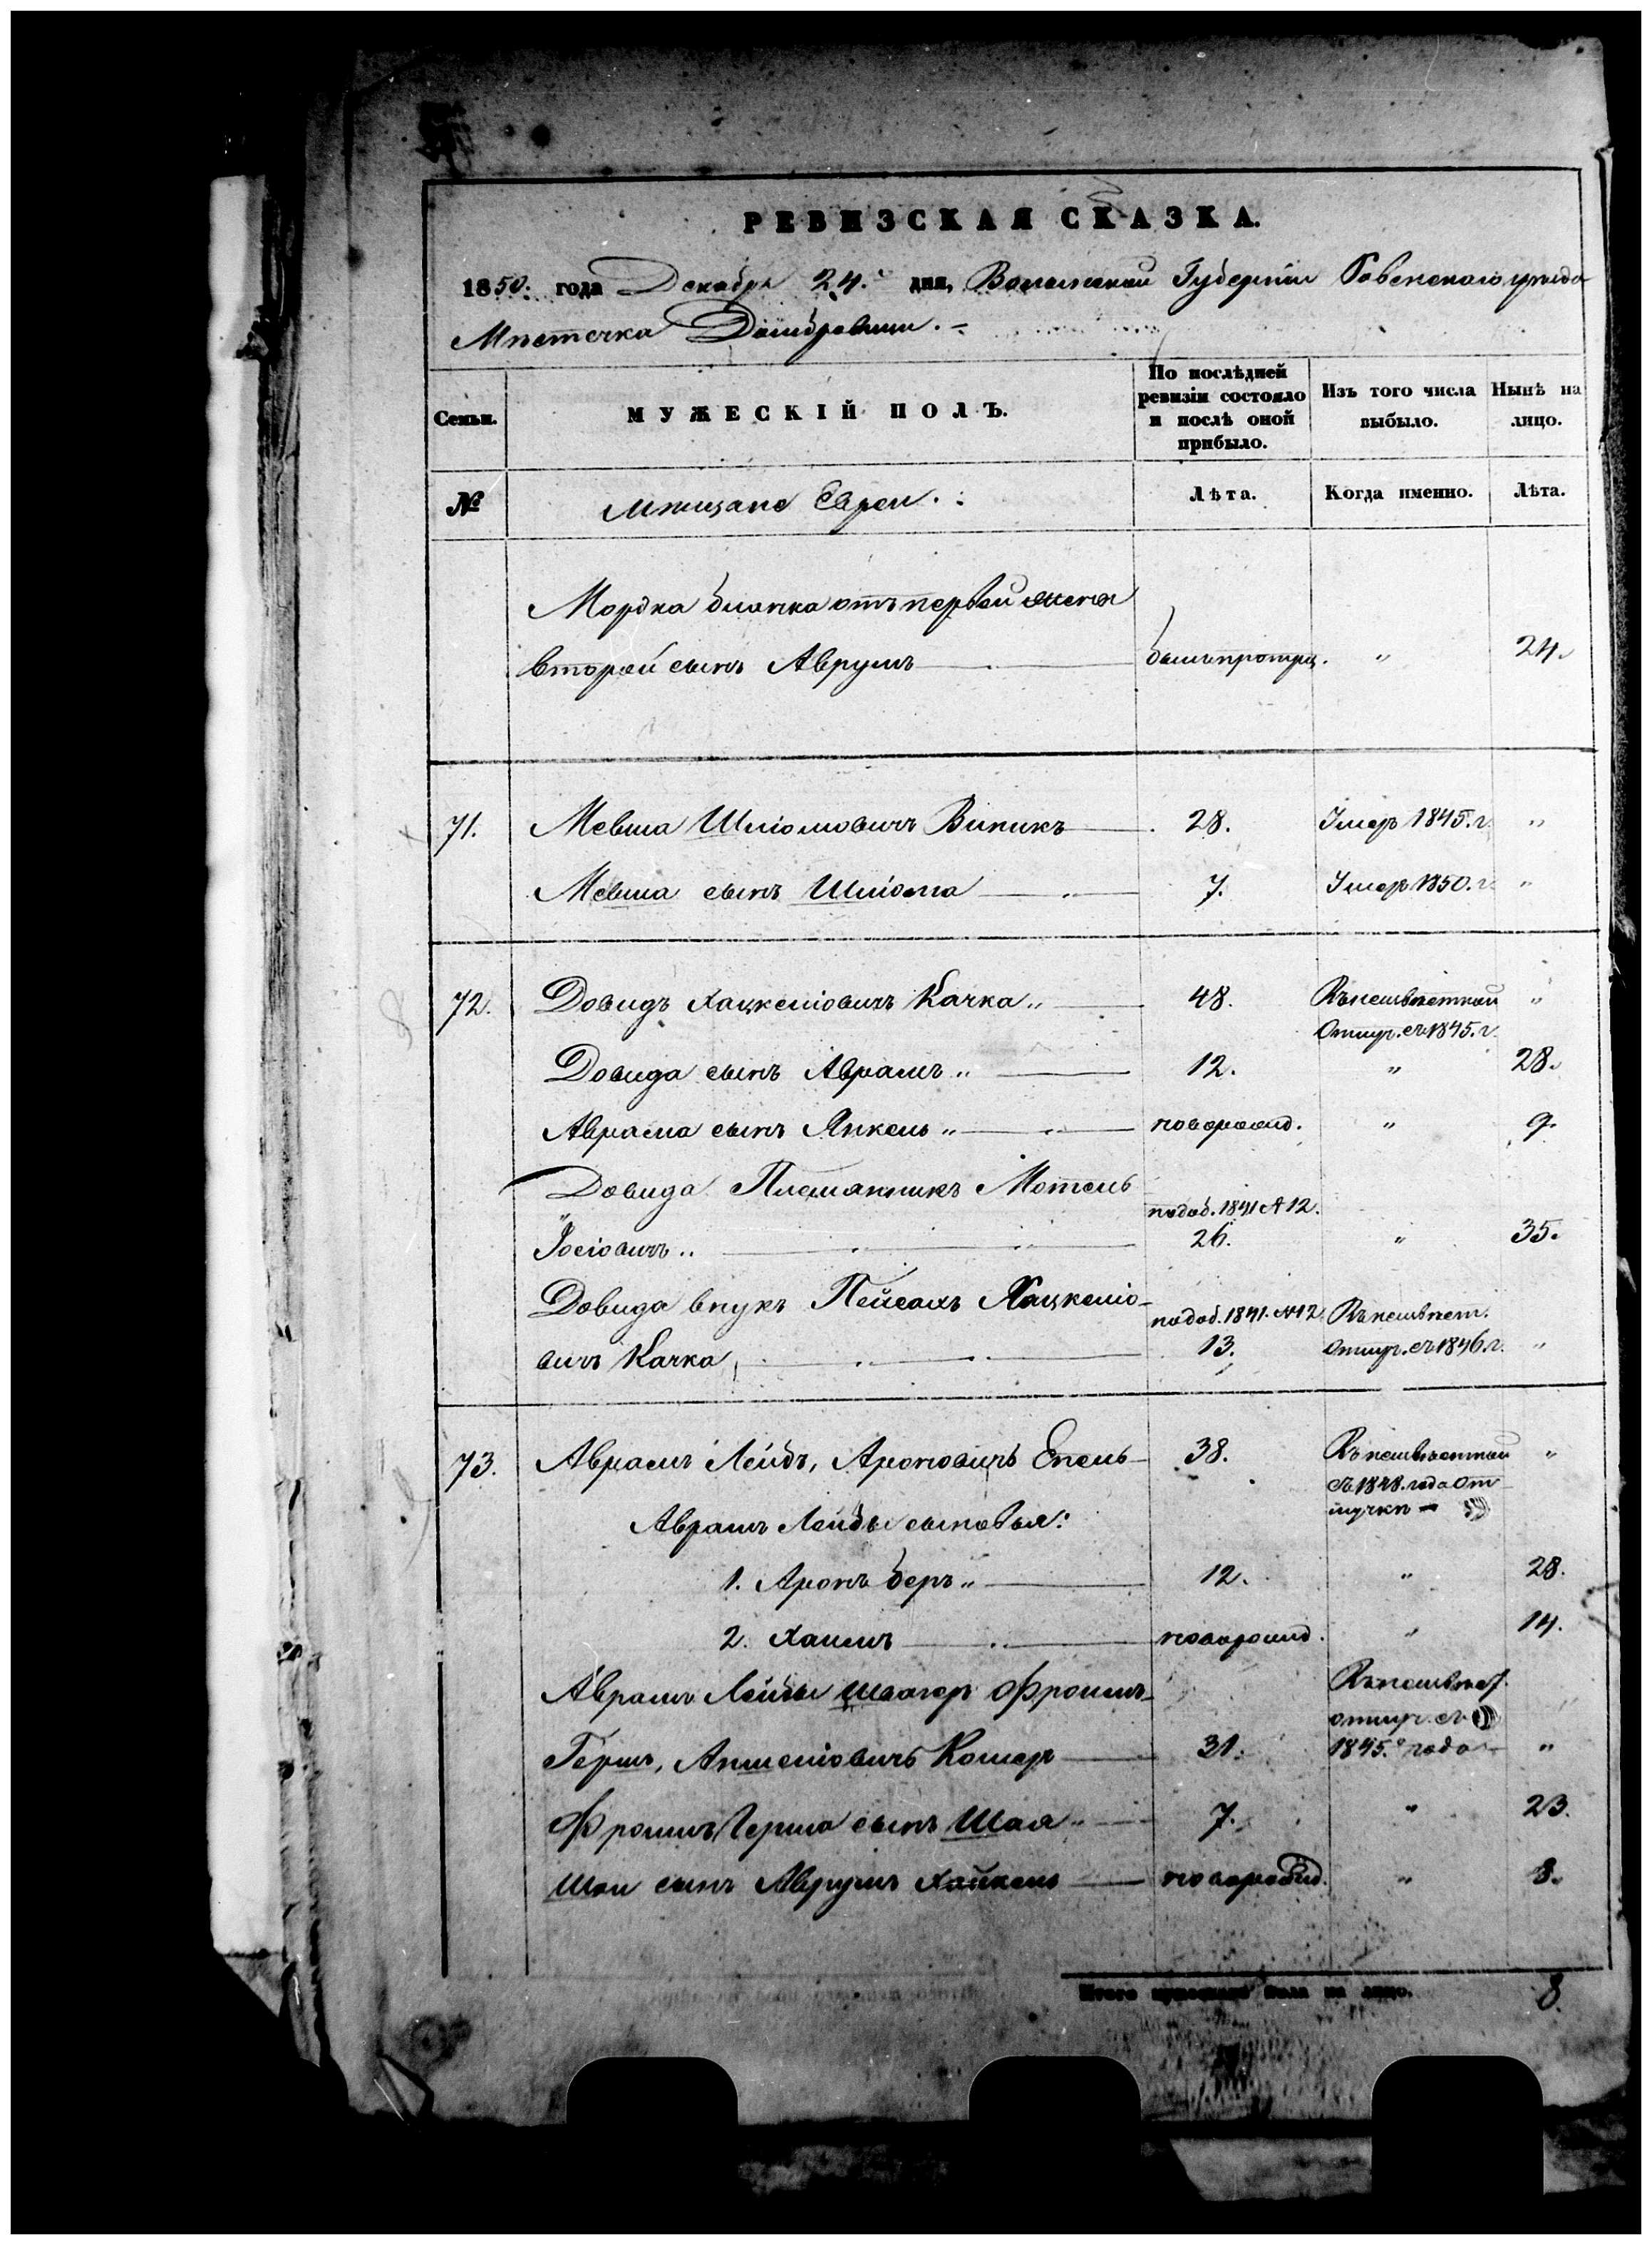 РЕВИЗСКАЯ СКАЗКА.
1850. года Декабря 24. дня, Волынской Губерніи Ровенскаго уѣзда
Мѣстечка Домбровици. -
Семьи.
МУЖЕСКІЙ ПОЛЪ.
По послѣдней ревизіи состояло и послѣ оной прибыло.
Изъ того числа выбыло.
Нынѣ на лицо.
№
Мѣщане Евреи.
Лѣта.
Когда именно.
Лѣта.
Мордка отъ первой жены
второй сынъ Аврумъ былъ „ 24.
71. Мевша Шліомовичъ Виникъ 28. Умеръ 1845. г. „
Мевша сынъ Шліома 7. Умеръ 1850. г. „
72. Довидъ Хацкеліовичъ Качка „ 48. Въ неизвѣстной „
Отлуч. съ 1845. г.
Довида сынъ Аврамъ „ 12. „ 28.
Аврама сынъ Янкель „ новорожд. „ 9.
Довида Племянникъ Мотель подоб. 1841 № 12.
Іосіовичъ „ 26. „ 35.
Довида внукъ Пейсахъ Хацкеліо- подоб. 1841. №12 Въ неизвѣст.
вичъ Качка 13. Отлуч. съ 1846. г. „
73. Аврамъ Лейбъ, Ароновичъ 38. Въ неизвѣстной „
съ 1848. года От
лучкѣ
Аврамъ Лейбы сыновья:
1. Аронъ Беръ „ 12. „ 28.
2. Хаимъ новорожд. „ 14.
Аврамъ Лейбы швагер Фроимъ- Въ неизвѣст.
отлуч. съ
Гершъ, Аншеліовичъ Кошер 31. 1845. года „
Фроимъ Герша сынъ Шая „ 7. „ 23.
Шаи сынъ Аврумъ Хайкель новорожд. „ 8.
Итого мужескаго пола на лицо. 8.